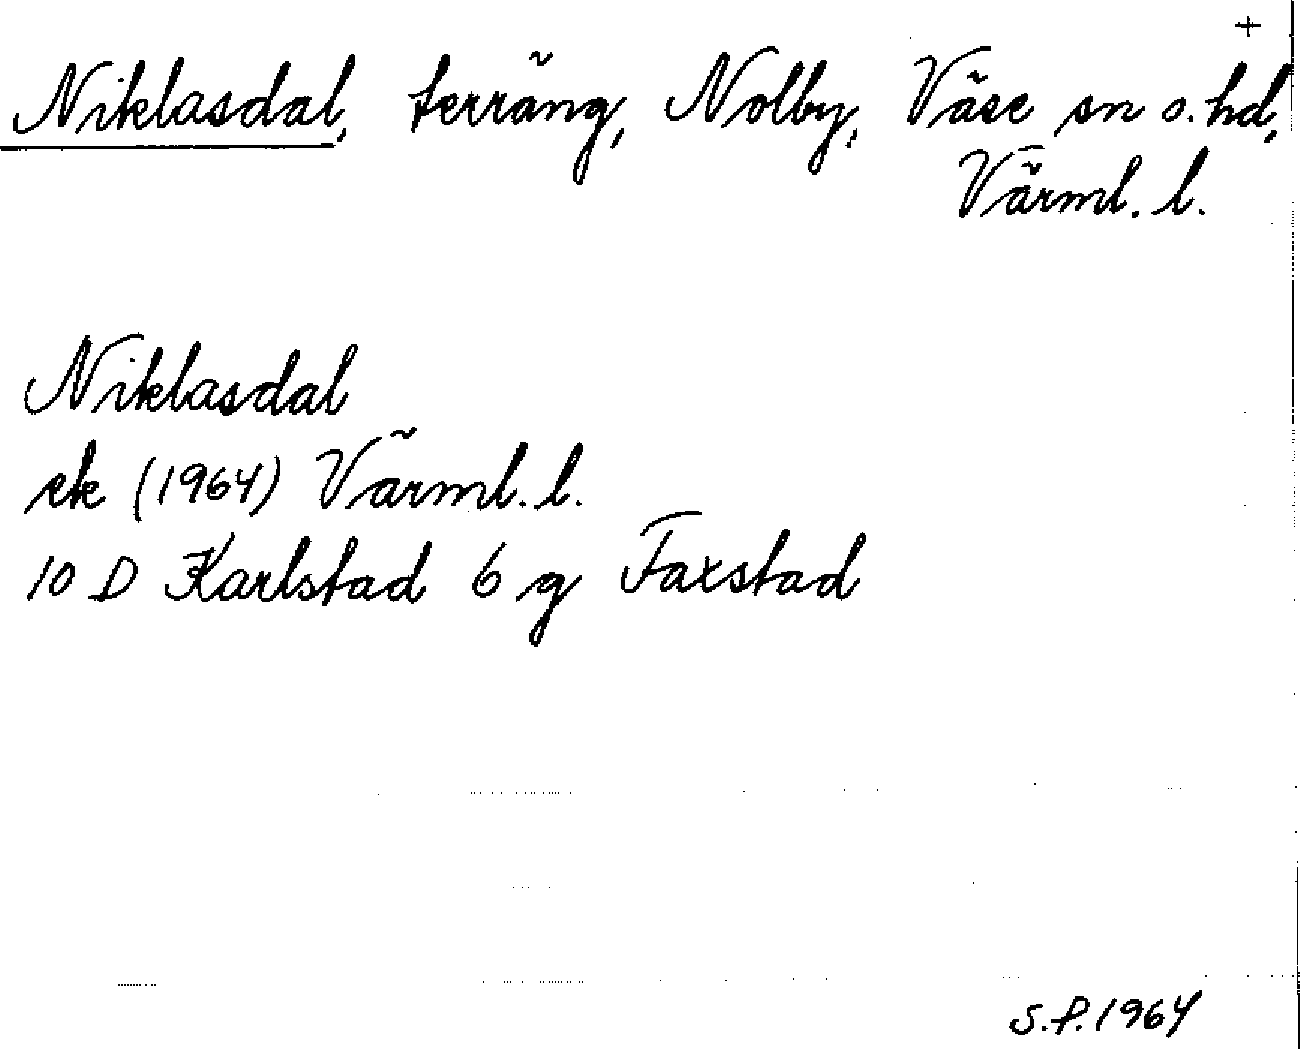 +
Niklasdal, terräng, Nolby, Väse sn o. hd,
Värml. l.
Niklasdal
ek (1964) Värml. l.
10 D Karlstad 6 g Faxstad
S.P. 1964